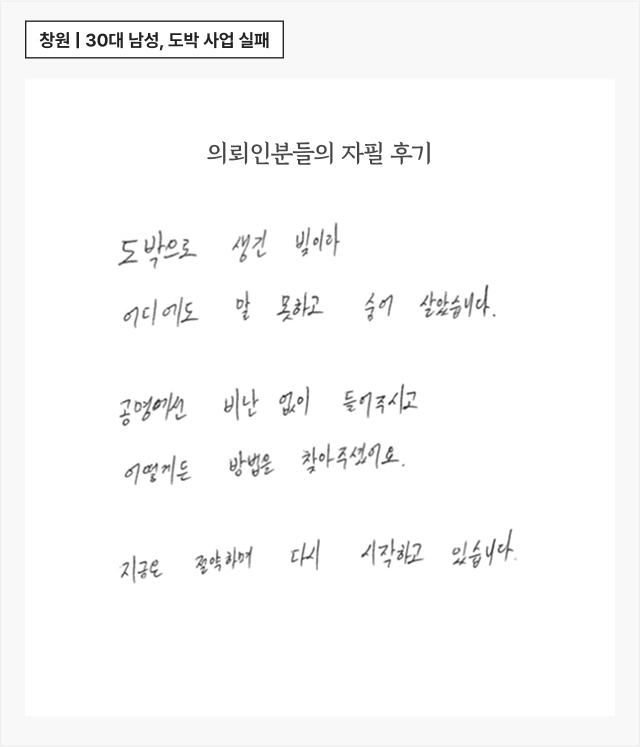 창원 | 30대 남성, 도박 사업 실패
의뢰인분들의 자필 후기
도박으로 생긴 빚이라
어디에도 말 못하고 숨어 살았습니다.
공명에선 비난 없이 들어주시고
어떻게든 방법을 찾아주셨어요.
지금은 절약하며 다시 시작하고 있습니다.